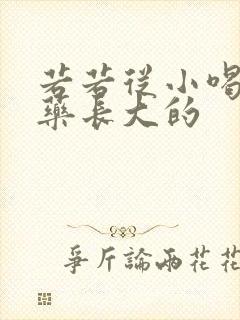 若若從小喝
藥長大的
爭斤論兩花花